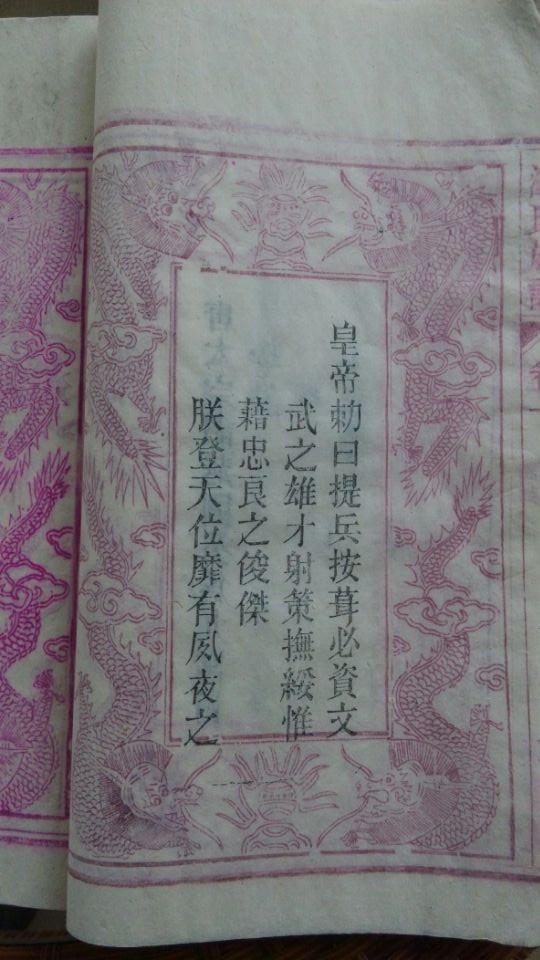 皇帝勅曰提兵按葺必資文
武之雄才射策撫綏惟
藉忠良之俊傑
朕登天位靡有夙夜之